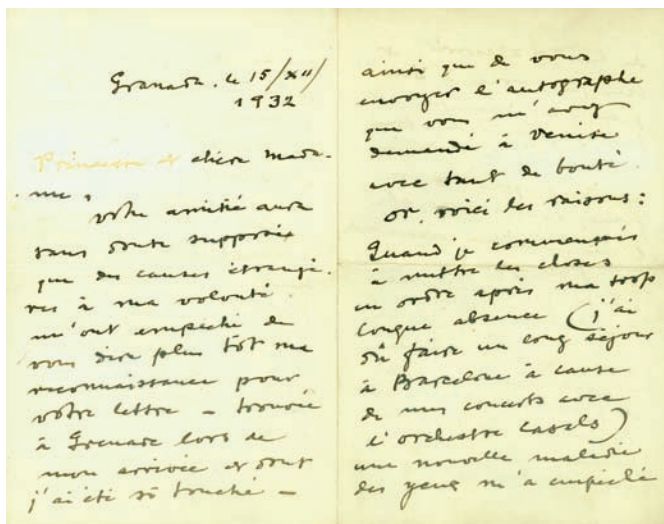 Granada. le 15/XII/
1932
Princesse et chère Mada-
me,
votre amitié aura
sans doute supposé
que des causes étrangè-
res à ma volonté
m'ont empêché de
vous dire plus tôt ma
reconnaissance pour
votre lettre – trouvée
à Grenade lors de
mon arrivée et dont
j'ai été si touché –
ainsi que de vous
envoyer l'autographe
que vous m'avez
demandé à Venise
avec tant de bonté.
Or, voici les raisons:
Quand je commençais
à mettre les choses
en ordre après ma trop
longue absence (j'ai
dû faire un long séjour
à Barcelone à cause
de mes concerts avec
l'orchestre Casals)
une nouvelle maladie
des yeux m'a empêché